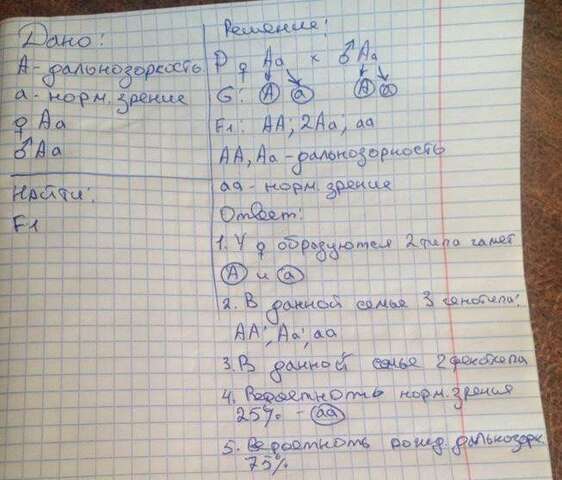 Дано:
А - дальнозоркость
а - норм. зрение
♀ Аа
♂ Аа
Найти:
F1
Решение:
Р ♀ Аа × ♂ Аа
G: А а А а
F1: АА; 2Аа; аа
АА, Аа - дальнозоркость
аа - норм. зрение
Ответ:
1. У ♀ образуются 2 типа гамет
А и а
2. В данной семье 3 генотипа:
АА; Аа; аа
3. В данной семье 2 фенотипа
4. Вероятность норм. зрения
25% - аа
5. Вероятность рожд. дальнозорк.
75%